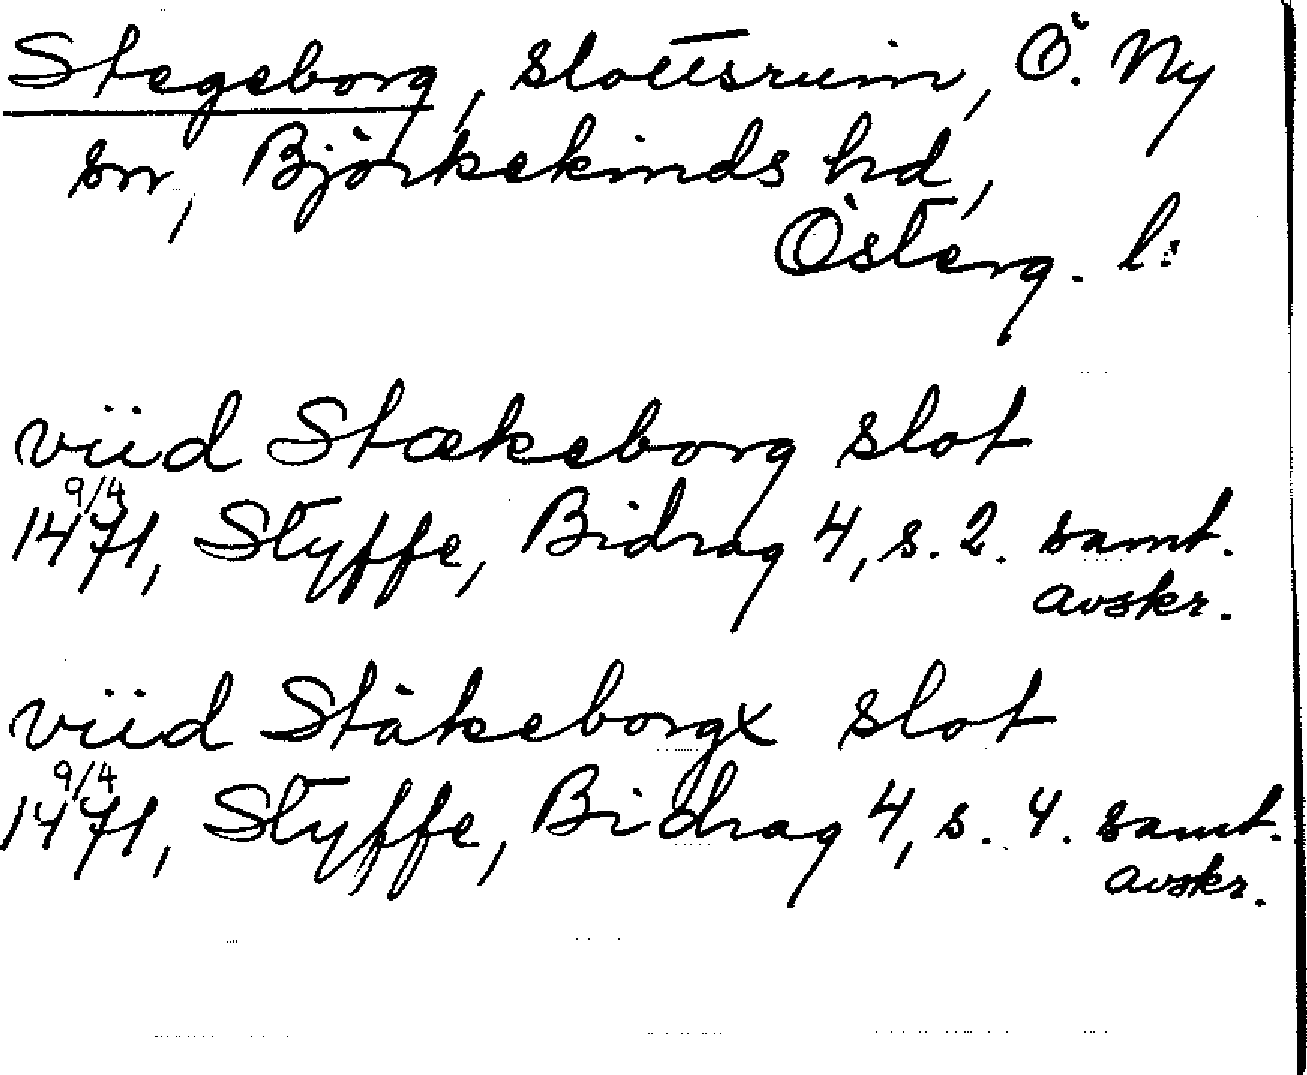 Stegeborg, slottsruin, Ö. Ny
sn, Björkekinds hd,
Österg. l:
viid Stækeborg slot
9/4
1471, Styffe, Bidrag 4, s. 2. samt.
avskr.
viid Stäkeborgx slot
9/4
1471, Styffe, Bidrag 4, s. 4. samt.
avskr.